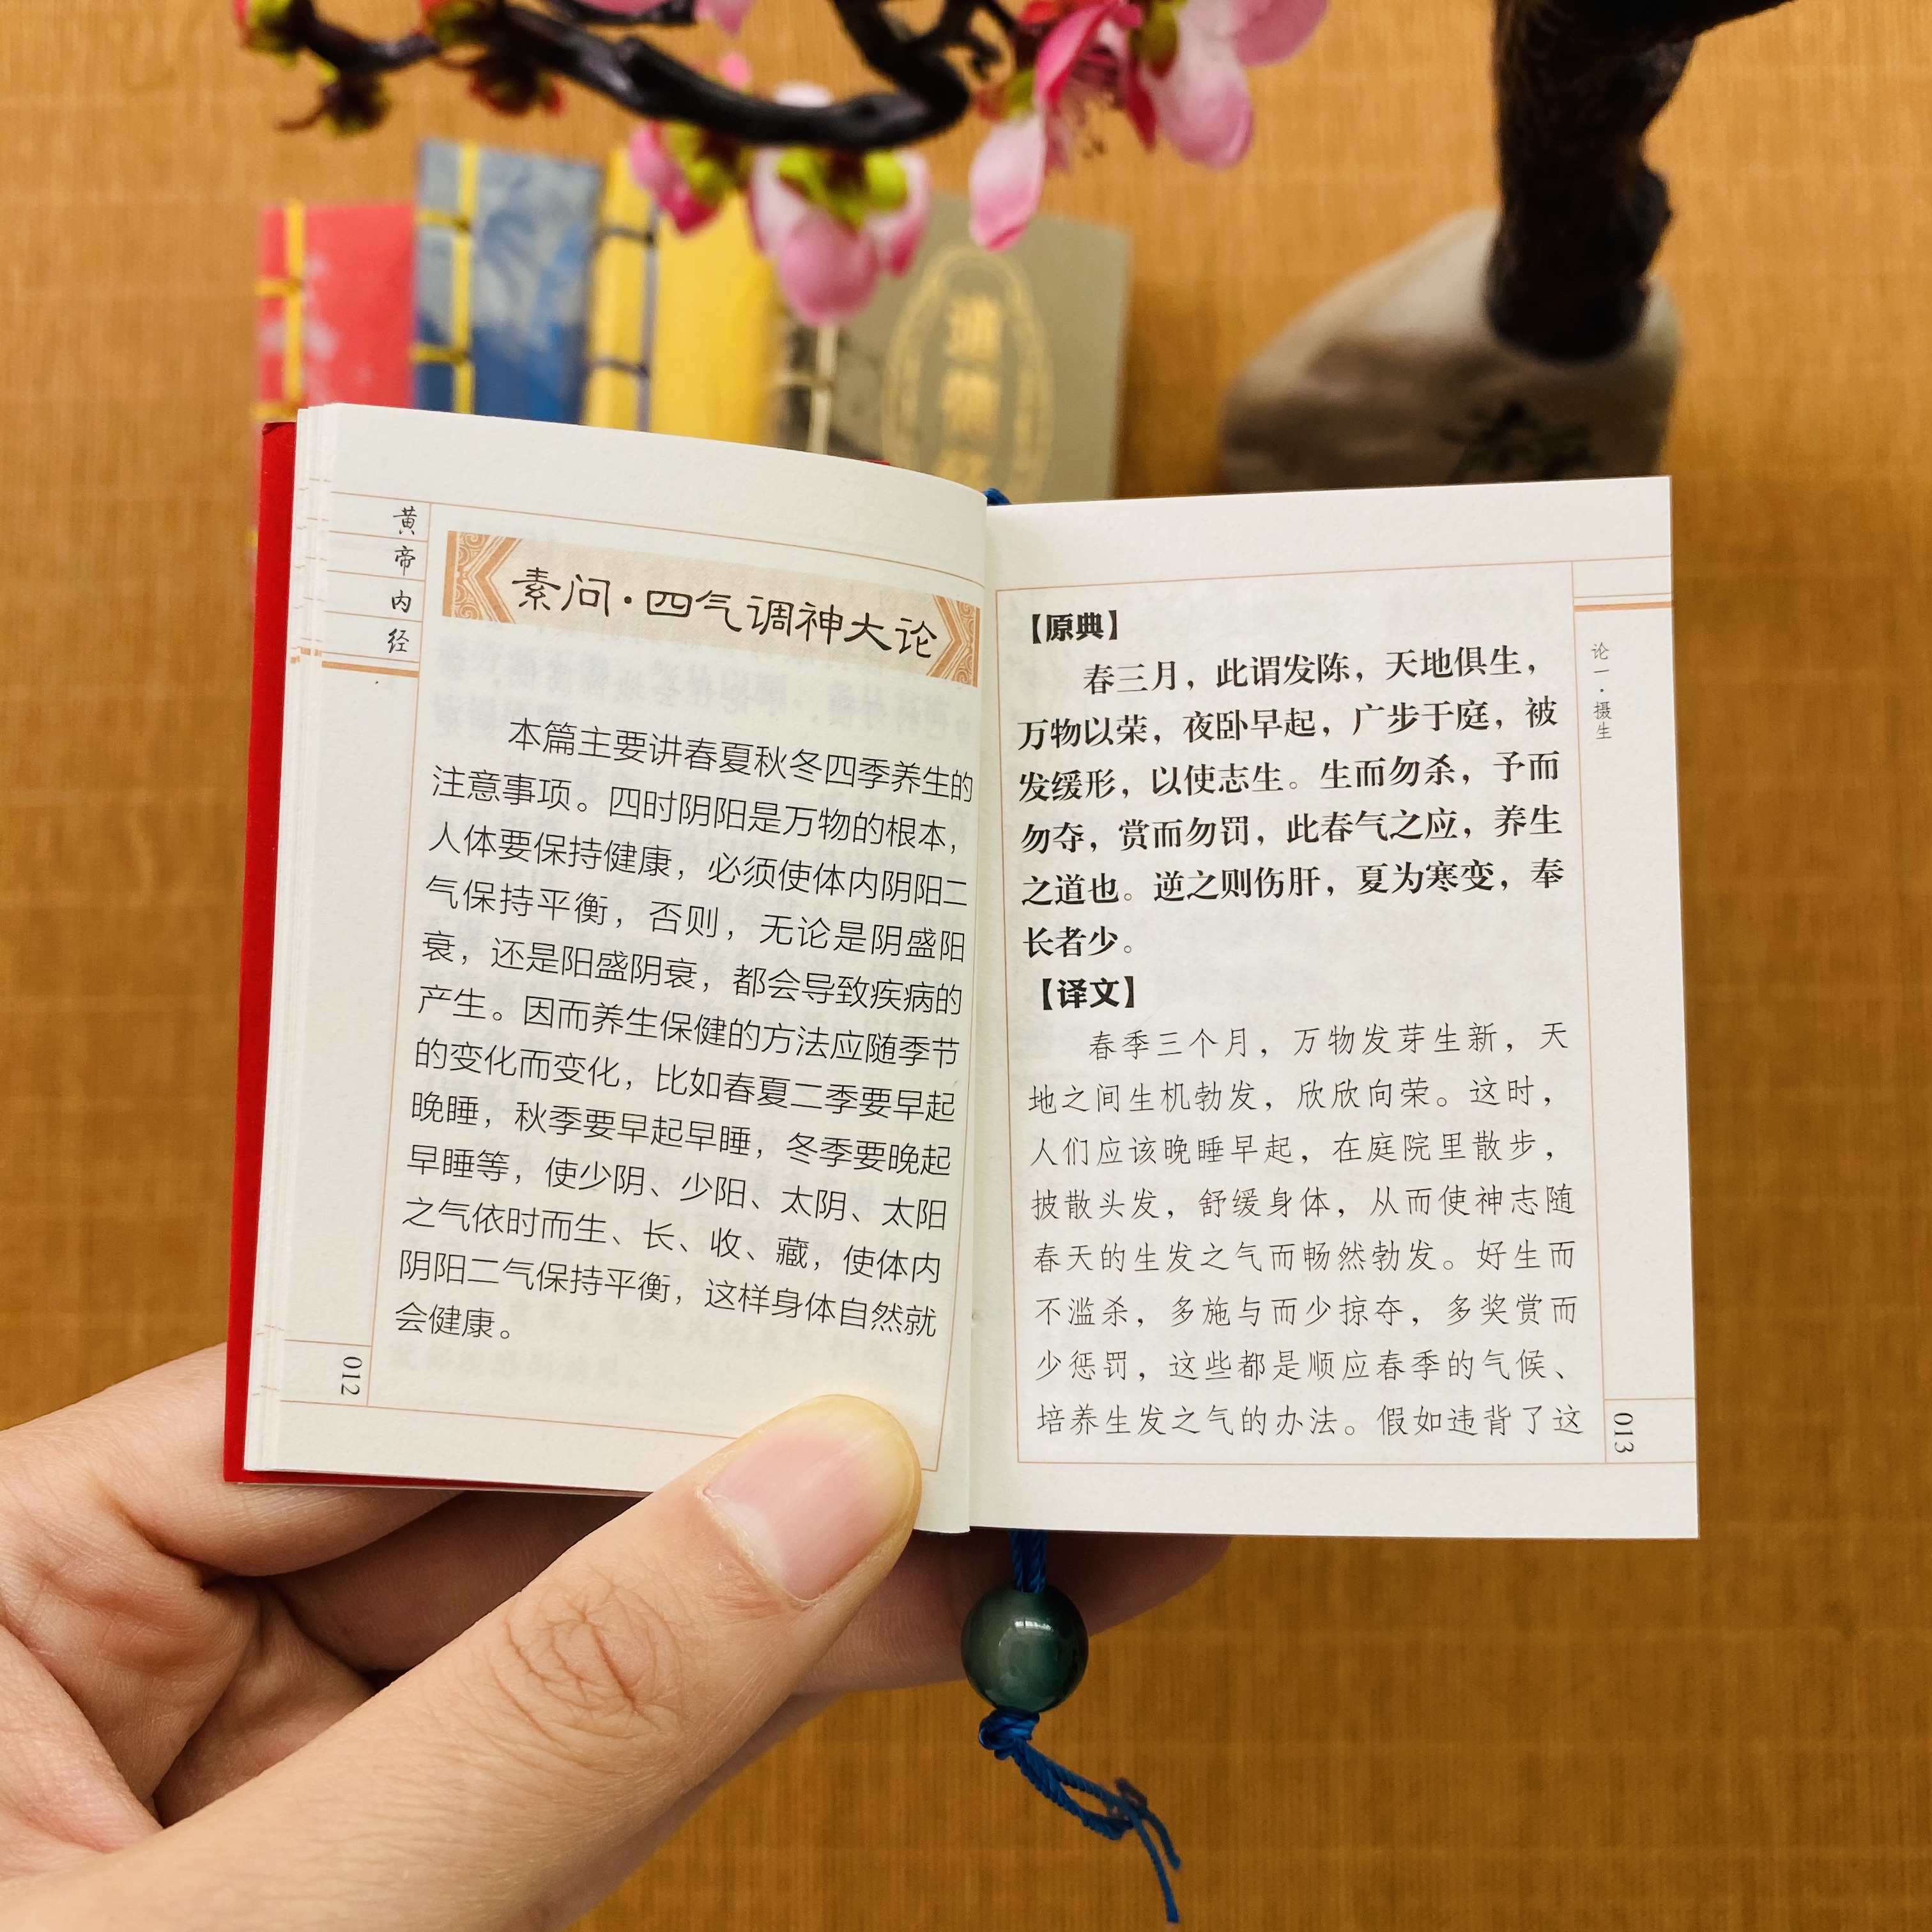 道德经
黄帝内经
素问·四气调神大论
本篇主要讲春夏秋冬四季养生的
注意事项。四时阴阳是万物的根本，
人体要保持健康，必须使体内阴阳二
气保持平衡，否则，无论是阴盛阳
衰，还是阳盛阴衰，都会导致疾病的
产生。因而养生保健的方法应随季节
的变化而变化，比如春夏二季要早起
晚睡，秋季要早起早睡，冬季要晚起
早睡等，使少阴、少阳、太阴、太阳
之气依时而生、长、收、藏，使体内
阴阳二气保持平衡，这样身体自然就
会健康。
012
【原典】
春三月，此谓发陈，天地俱生，
万物以荣，夜卧早起，广步于庭，被
发缓形，以使志生。生而勿杀，予而
勿夺，赏而勿罚，此春气之应，养生
之道也。逆之则伤肝，夏为寒变，奉
长者少。
【译文】
春季三个月，万物发芽生新，天
地之间生机勃发，欣欣向荣。这时，
人们应该晚睡早起，在庭院里散步，
披散头发，舒缓身体，从而使神志随
春天的生发之气而畅然勃发。好生而
不滥杀，多施与而少掠夺，多奖赏而
少惩罚，这些都是顺应春季的气候、
培养生发之气的办法。假如违背了这
论一·摄生
013